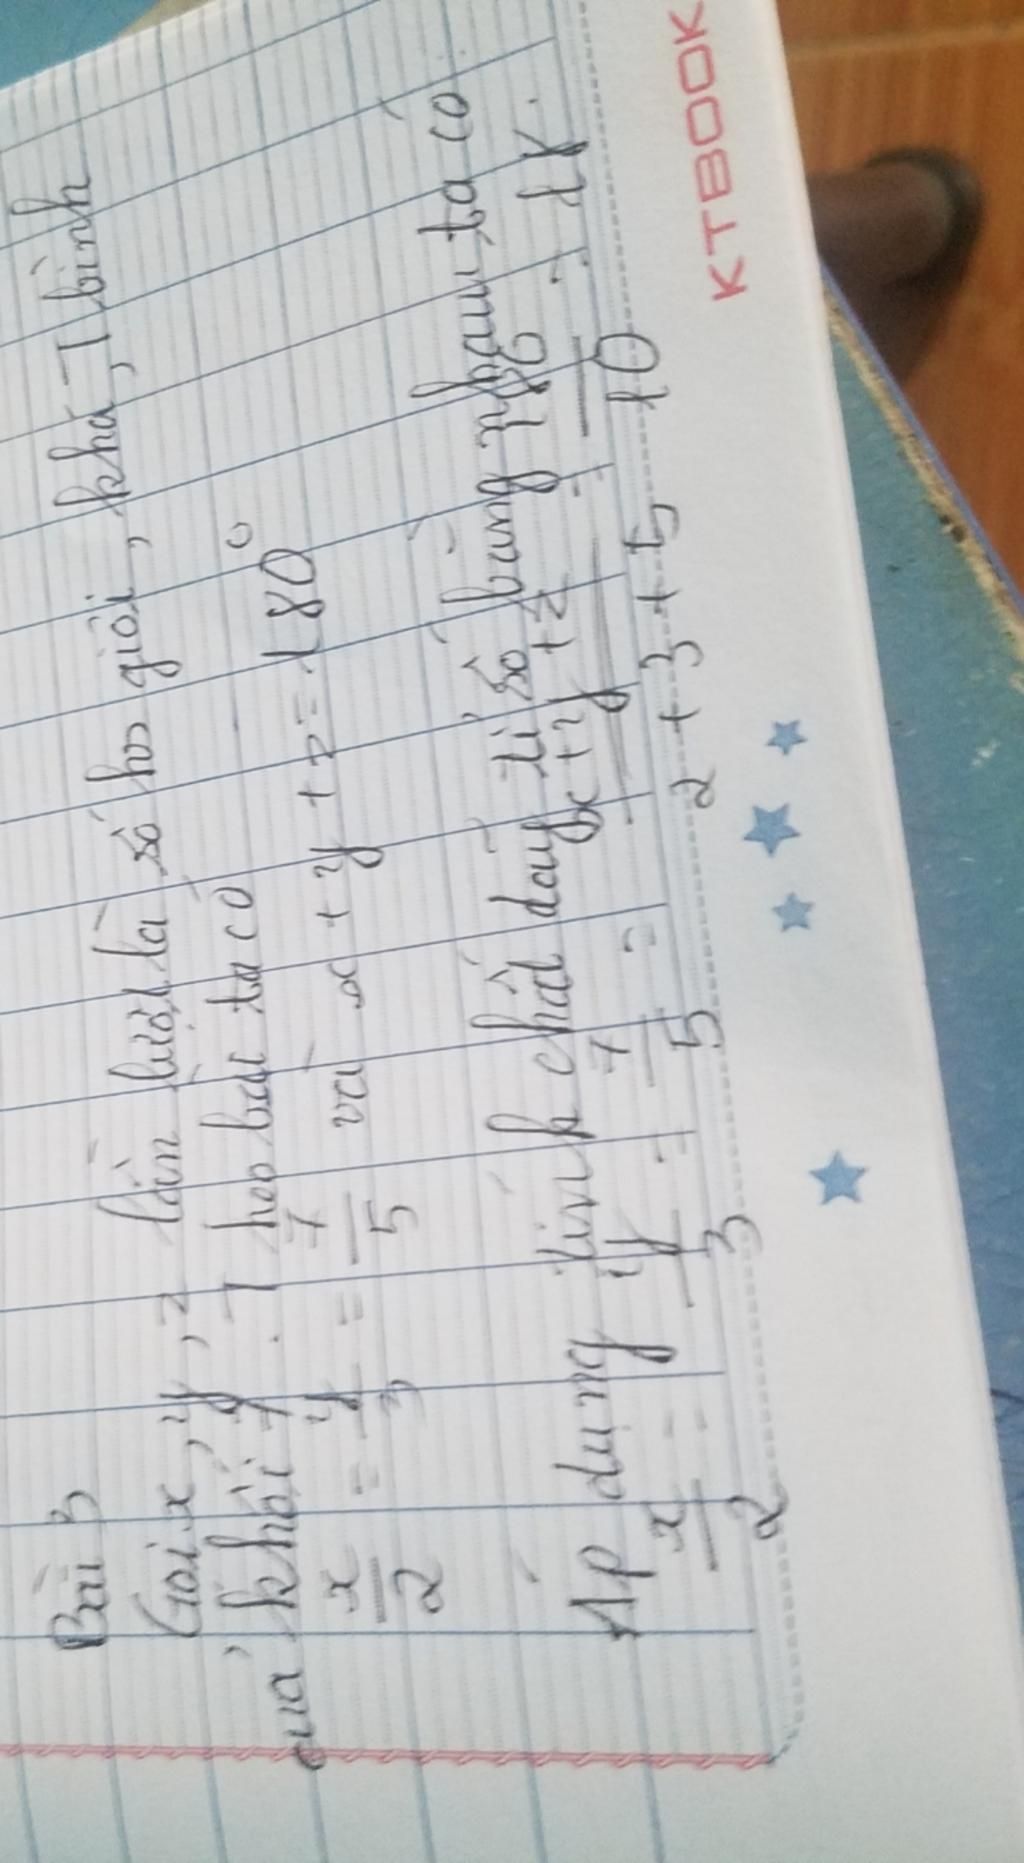 Bài 3
Gọi x, y, z lần lượt là số hs giỏi, khá, T bình
của khối 7. Theo bài ta có
x/2 = y/3 = z/5 và x + y + z = 180°
Áp dụng tính chất dãy tỉ số bằng nhau ta có
x/2 = y/3 = z/5 = x+y+z / 2+3+5 = 180/10 = 18.
KTBOOK